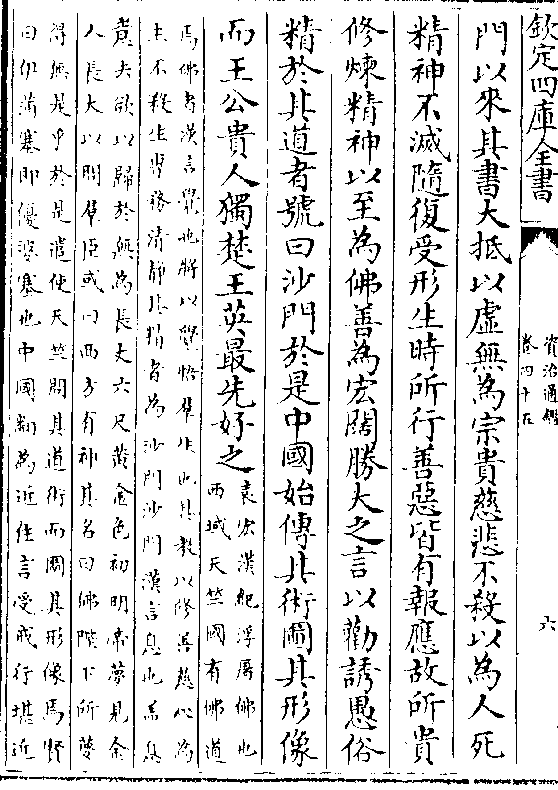 欽定四庫全書
資治通鑑
卷四十五
六
門以來其書大抵以虛無為宗貴慈悲不殺以為人死
精神不滅隨復受形生時所行善惡皆有報應故所貴
修煉精神以至為佛善為宏闊勝大之言以勸誘愚俗
精於其道者號曰沙門於是中國始傳其術圖其形像
而王公貴人獨楚王英最先好之
袁宏漢紀浮屠佛也
西域天竺國有佛道
焉佛者漢言覺也將以覺悟羣生也其教以修善慈心為
主不殺生專務清静其精者為沙門沙門漢言息也葢息
意去欲以歸於無為長丈六尺黄金色初明帝夢見金
人長大以問羣臣或曰西方有神其名曰佛陛下所夢
得無是乎於是遣使天竺問其道術而圖其形像焉賢
曰伊蒲塞即優婆塞也中國翻為近住言受戒行堪近